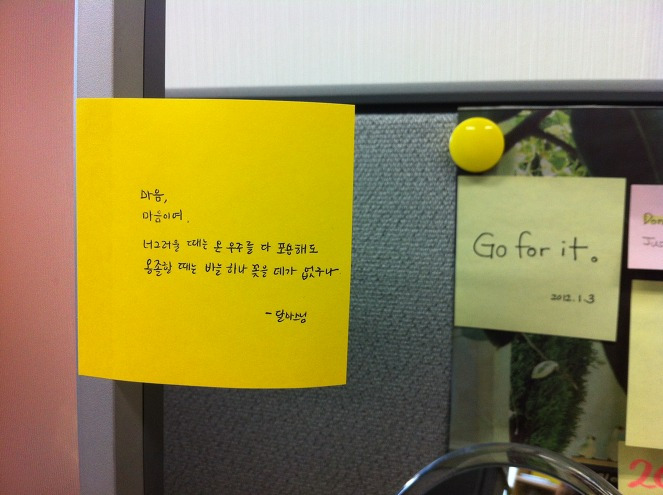 마음,
마음이여.
너그러울 때는 온 우주를 다 포용해도
옹졸할 때는 바늘 하나 꽂을 데가 없구나
- 달마스님
Go for it.
2012.1.3
Don
Jus
20